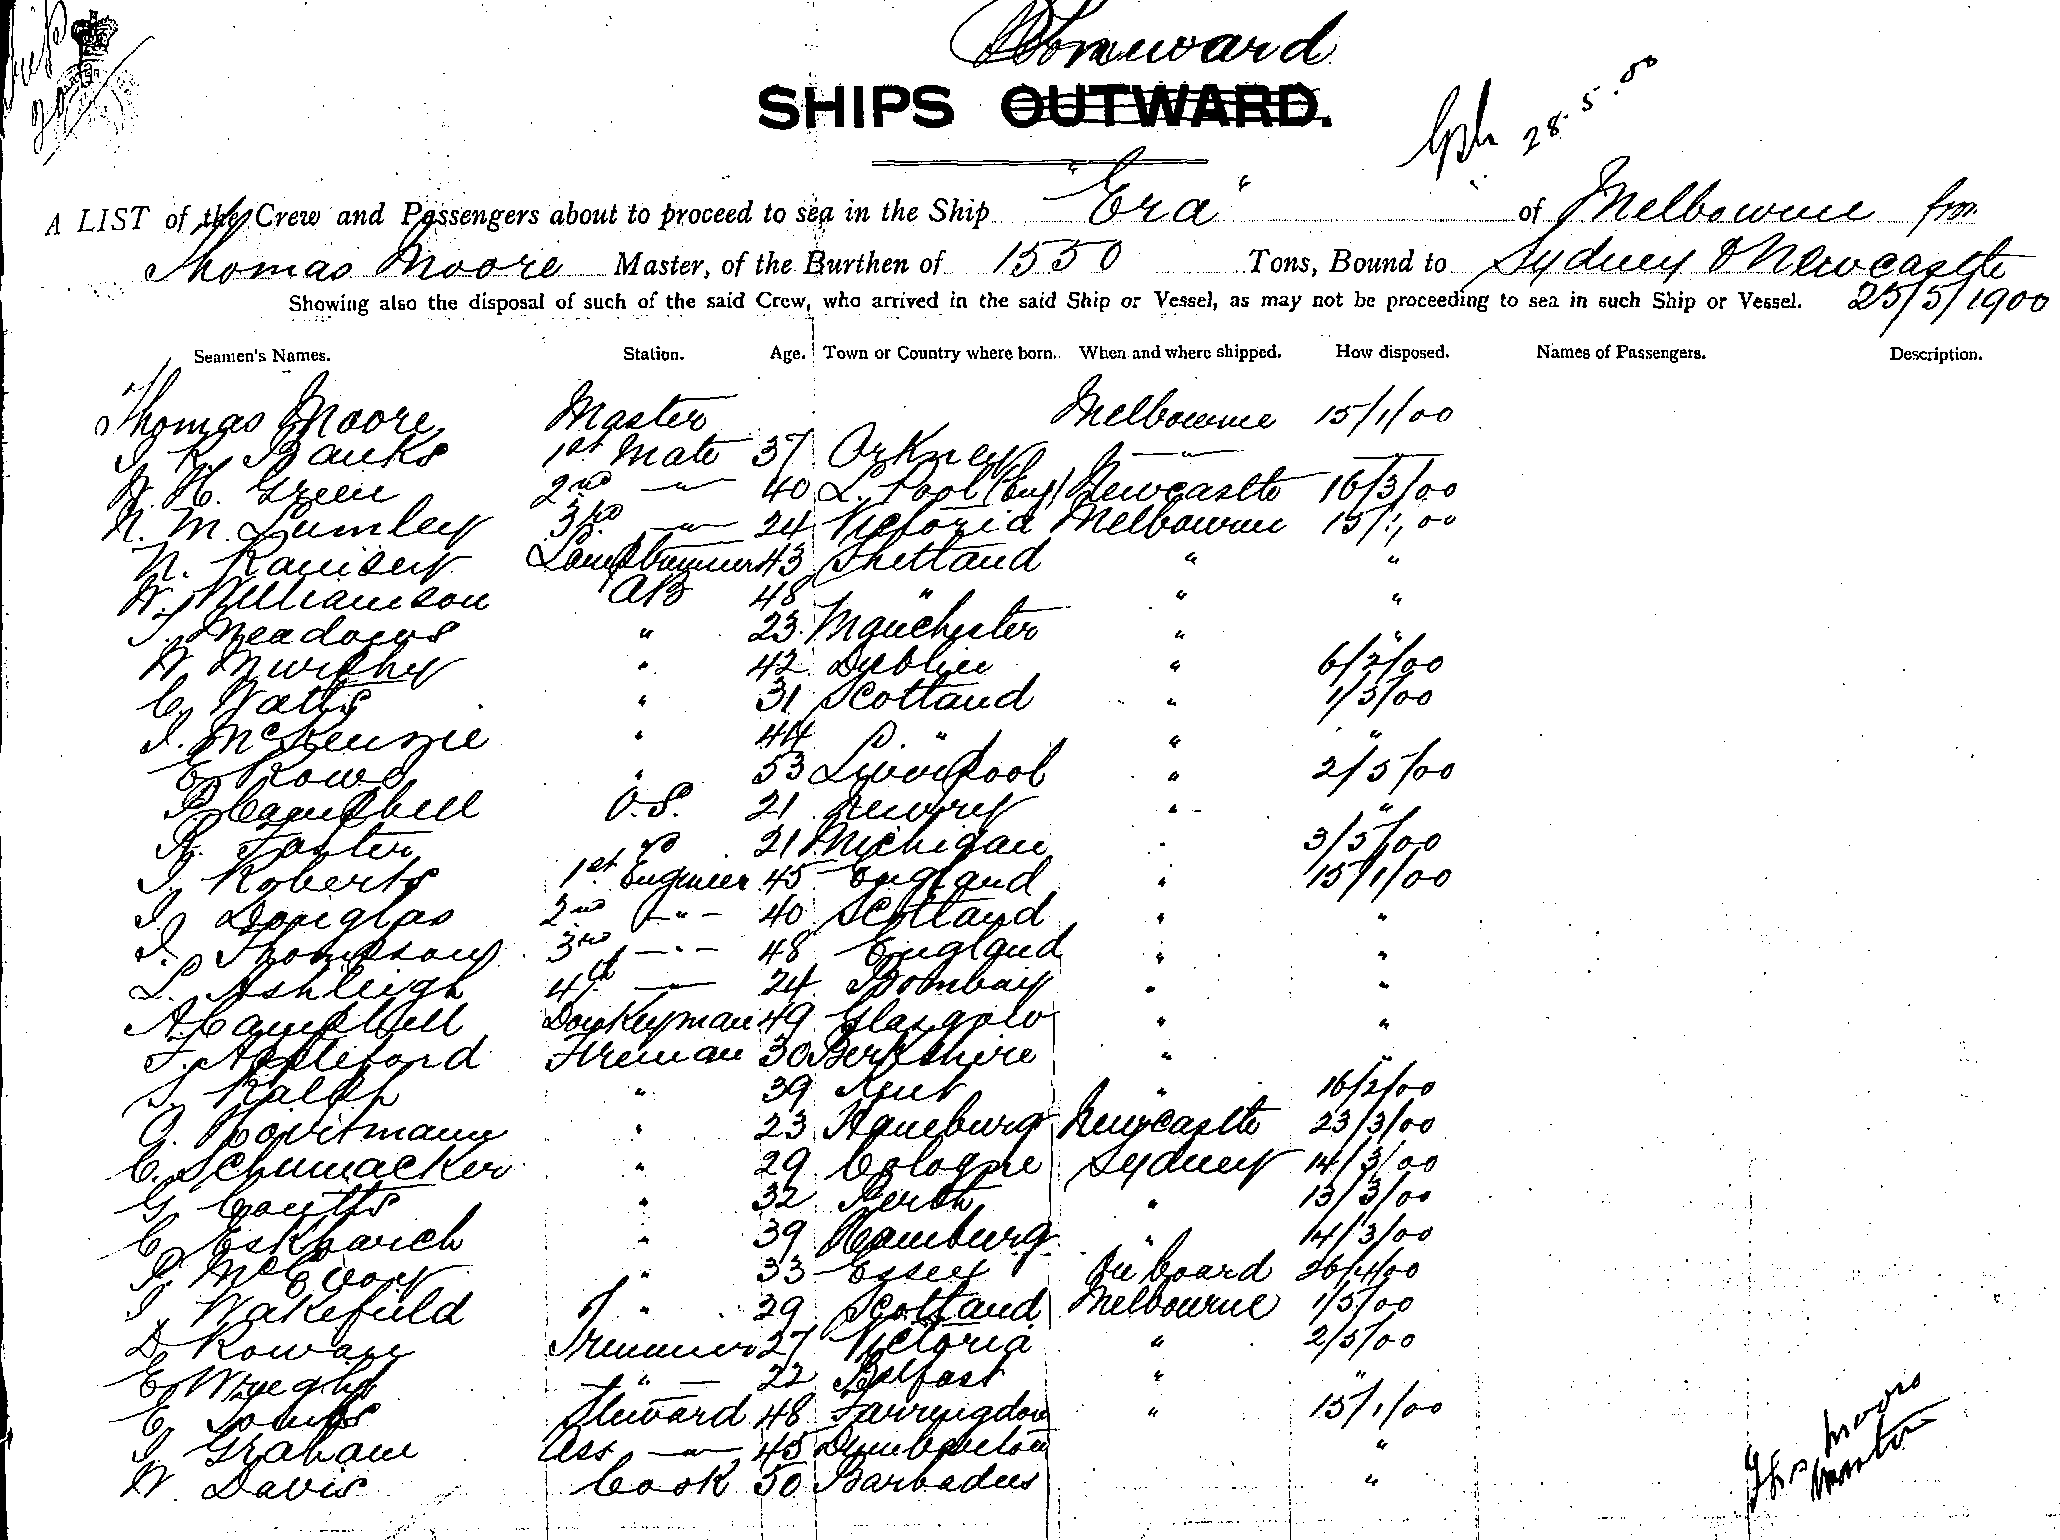 Homeward
SHIPS OUTWARD.
28.5.00
A LIST of the Crew and Passengers about to proceed to sea in the Ship "Era" of Melbourne from
Thomas Moore Master, of the Burthen of 1550 Tons, Bound to Sydney & Newcastle
Showing also the disposal of such of the said Crew, who arrived in the said Ship or Vessel, as may not be proceeding to sea in such Ship or Vessel. 25/5/1900
Seamen's Names. Station. Age. Town or Country where born. When and where shipped. How disposed. Names of Passengers. Description.
Thomas Moore Master Melbourne 15/1/00
J. R. Banks 1st Mate 37 Orkney —"— ——
W. H. Green 2nd —"— 40 L. Pool (Eng) Newcastle 16/3/00
N. M. Lumley 3rd —"— 24 Victoria Melbourne 15/1/00
N. Ramsey Lamptrimmer 43 Shetland " "
W. Williamson AB 48 " " "
J. Meadows " 23 Manchester " "
W. Murphy " 42 Dublin " 6/2/00
C. Watts " 31 Scotland " 1/5/00
J. McKenzie " 44 " " "
E. Rowe " 53 Liverpool " 2/5/00
P. Campbell O.S. 21 Newry " "
R. Foster do 21 Michigan " 3/5/00
J. Roberts 1st Engineer 45 England " 15/1/00
J. Douglas 2nd —"— 40 Scotland " "
J. Thompson 3rd —"— 48 England " "
L. Ashleigh 4th —"— 24 Bombay " "
A. Campbell Donkeyman 49 Glasgow " "
F. Appleford Fireman 30 Berkshire " "
J. Ralph " 39 Kent " 16/2/00
" 23 Hamburg Newcastle 23/3/00
C. Schumacker " 29 Cologne Sydney 14/3/00
G. Coutts " 32 Perth " 13/3/00
C. " 39 Hamburg " 14/3/00
P. McEvoy " 33 Essex On board 26/4/00
J. Wakefield " 29 Scotland Melbourne 1/5/00
D. Rowan Trimmer 27 Victoria " 2/5/00
E. Wright —"— 22 Belfast " "
E. Tombs Steward 48 Farringdon " 15/1/00
J. Graham Ass —"— 45 Dumbarton "
W. Davis Cook 50 Barbadus "
Thos Moore
Master